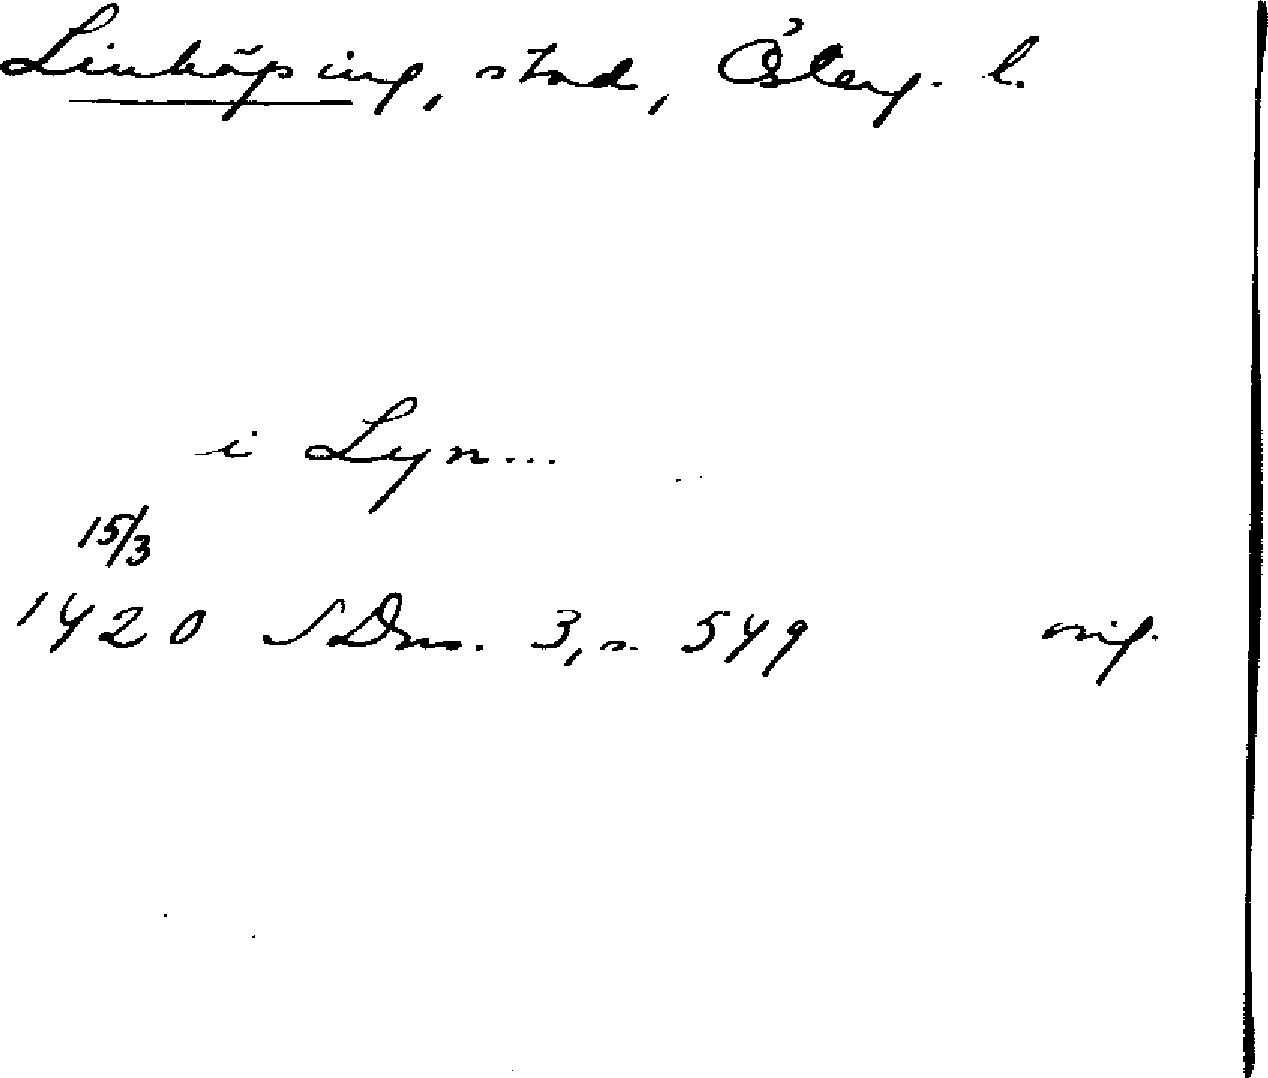 Linköping, stad, Österg. l.
i Lyn...
15/3
1420 SDns. 3, s. 549 orig.